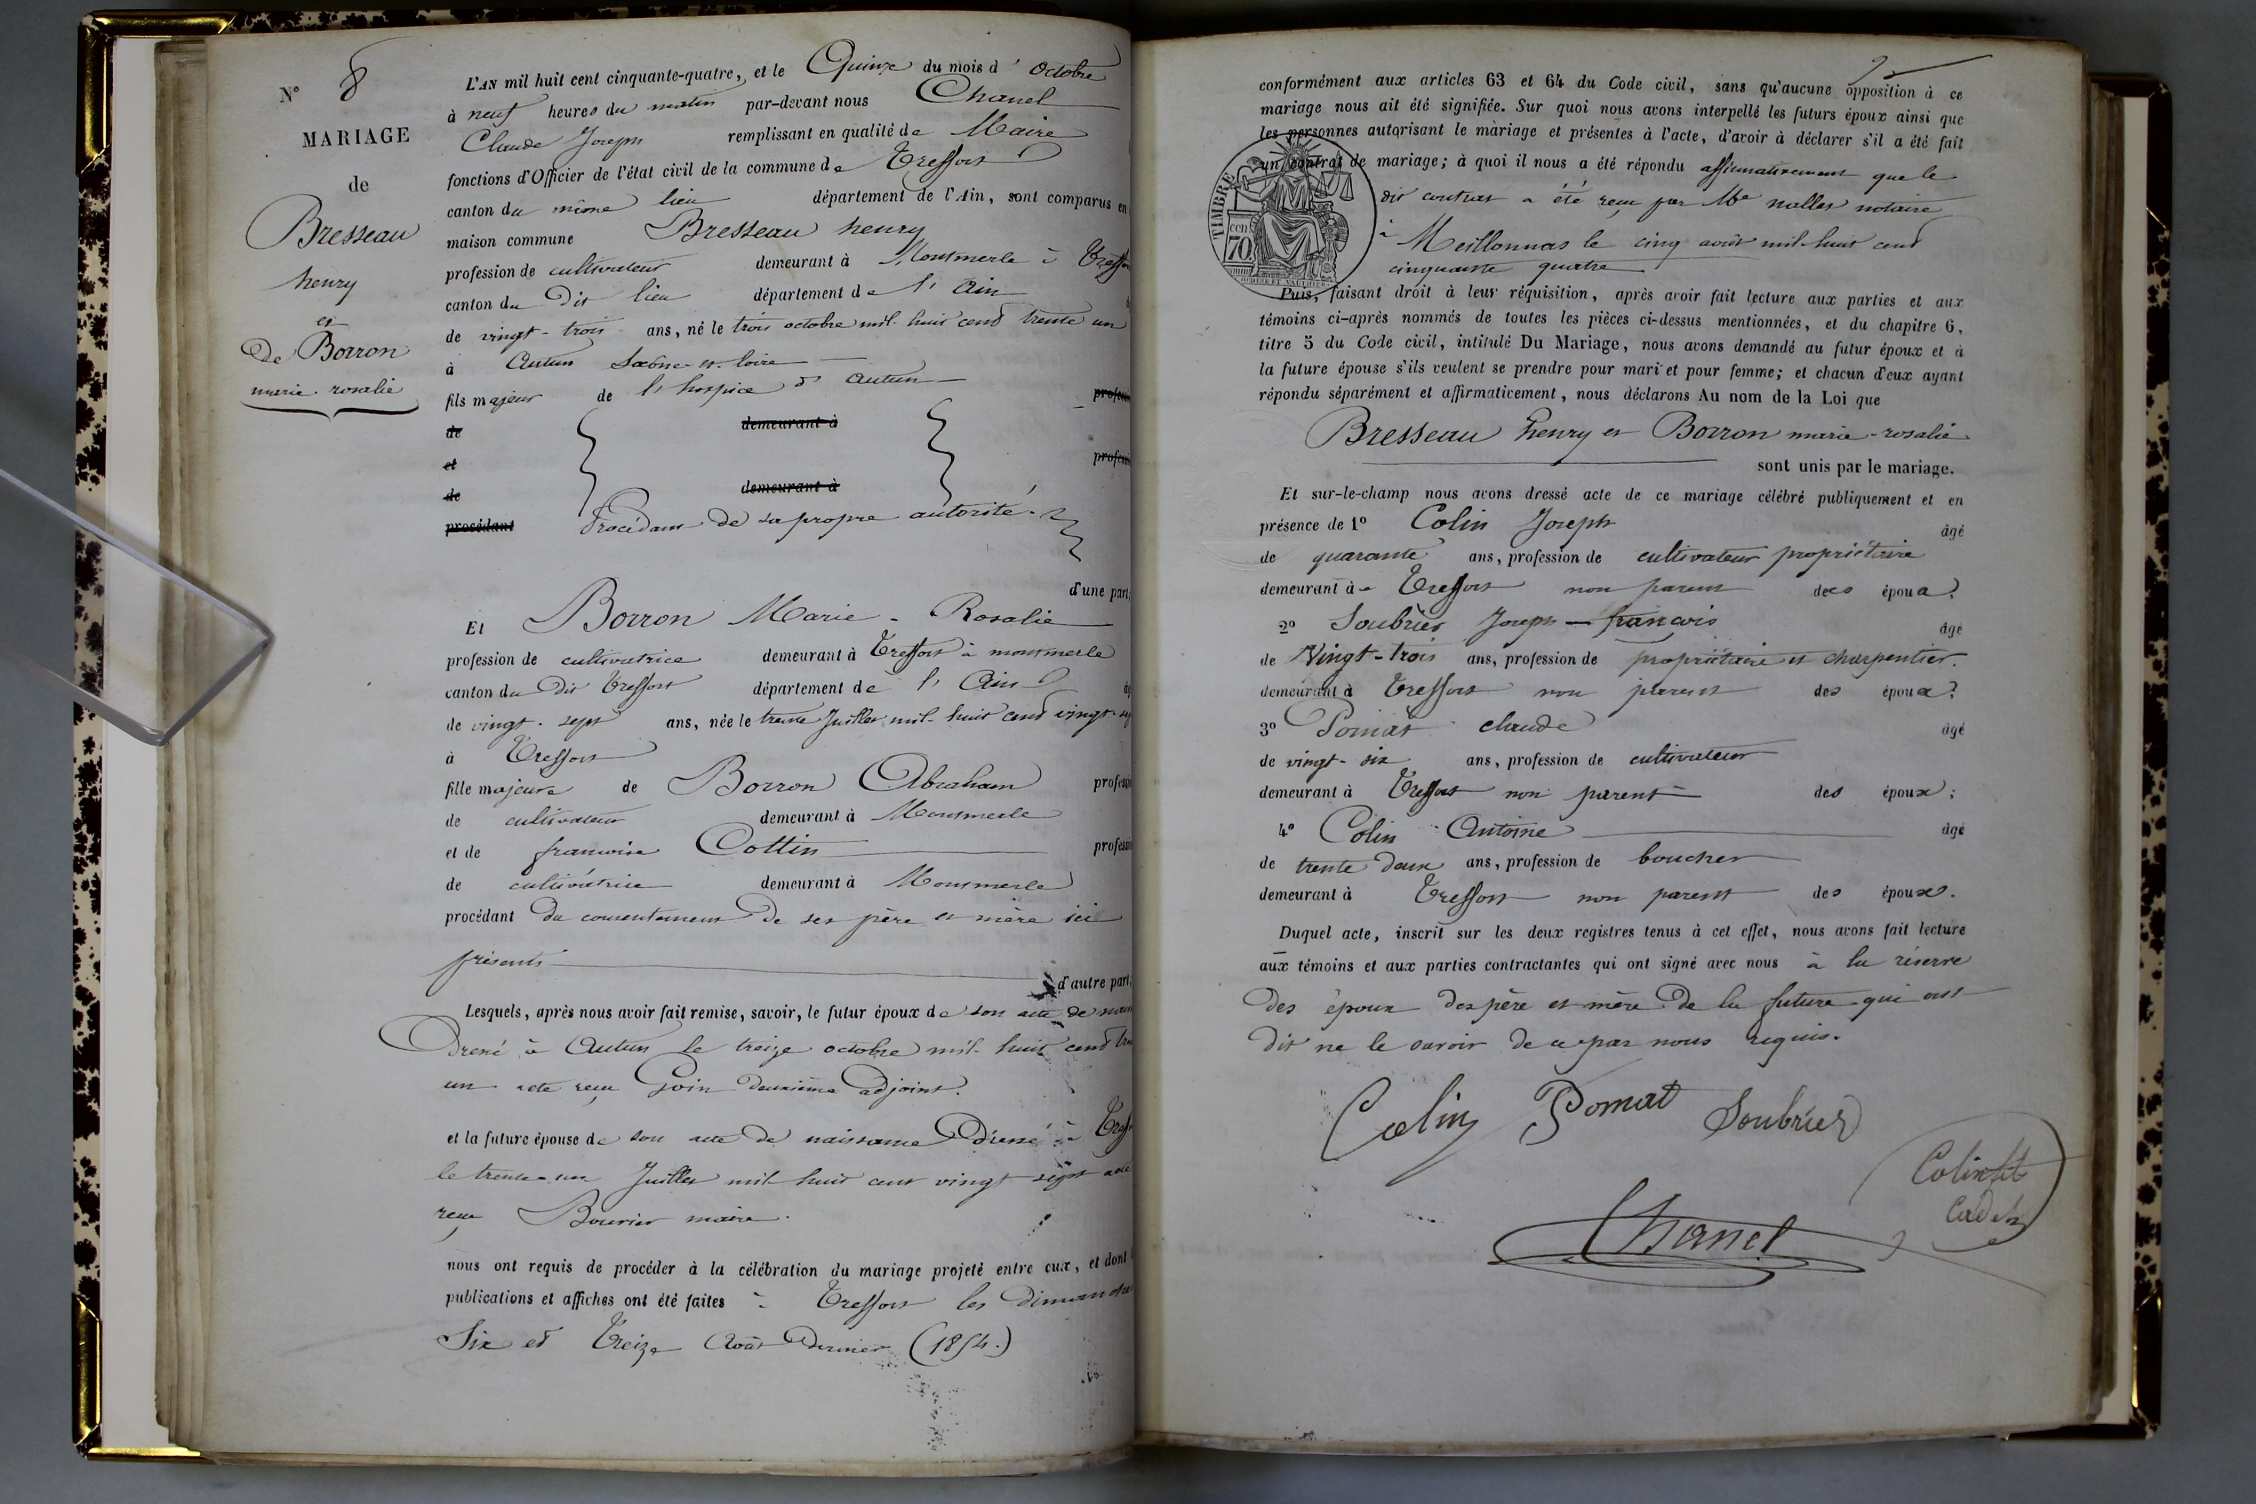 N° 8
MARIAGE
de
Bresseau
henry
et
De Borron
marie-rosalie
L'AN mil huit cent cinquante-quatre, et le Quinze du mois d' octobre
à neuf heures du matin par-devant nous Chanel
Claude Joseph remplissant en qualité de Maire
fonctions d'Officier de l'état civil de la commune de Treffort
canton du même lieu département de l'Ain, sont comparus en
maison commune Bresseau henry
profession de cultivateur demeurant à Montmerle à Treffort
canton du Dit lieu département de l' Ain
de vingt-trois ans, né le trois octobre mil-huit cent trente un
à Autun Saône-et-loire
fils majeur de l'hospice d' autun
de demeurant à
et
de demeurant à
procédant Procédant de sa propre autorité
d'une part;
Et Borron Marie-Rosalie
profession de cultivatrice demeurant à Treffort à montmerle
canton du Dit Treffort département de l' Ain
de vingt-sept ans, née le trente Juillet mil-huit cent vingt-sep
à Treffort
fille majeure de Borron Abraham profession
de cultivateur demeurant à Montmerle
et de francoise Cottin profession
de cultivatrice demeurant à Montmerle
procédant du consentement De ses père et mère ici
présents
d'autre part;
Lesquels, après nous avoir fait remise, savoir, le futur époux de son acte de
Dressé à Autun le treize octobre mil-huit cent
un acte reçu Goin deuxième adjoint.
et la future épouse de son acte de naissance Dressé à Treff
le trente-un Juillet mil huit cent vingt sept acte
reçu Bouvier maire.
nous ont requis de procéder à la célébration du mariage projeté entre eux, et dont
publications et affiches ont été faites à Treffort les Dimanche
Six et Treize Août Dernier (1854.)
conformément aux articles 63 et 64 du Code civil, sans qu'aucune opposition à ce
mariage nous ait été signifiée. Sur quoi nous avons interpellé les futurs époux ainsi que
les personnes autorisant le mariage et présentes à l'acte, d'avoir à déclarer s'il a été fait
un contrat de mariage; à quoi il nous a été répondu affirmativement que le
TIMBRE
cen
70.
dit contrat a été reçu par Me nallet notaire
à Meillonnas le cinq août mil-huit cent
cinquante quatre
Puis, faisant droit à leur réquisition, après avoir fait lecture aux parties et aux
témoins ci-après nommés de toutes les pièces ci-dessus mentionnées, et du chapitre 6,
titre 5 du Code civil, intitulé Du Mariage, nous avons demandé au futur époux et à
la future épouse s'ils veulent se prendre pour mari et pour femme; et chacun d'eux ayant
répondu séparément et affirmativement, nous déclarons Au nom de la Loi que
Bresseau henry et Borron marie-rosalie
sont unis par le mariage.
Et sur-le-champ nous avons dressé acte de ce mariage célébré publiquement et en
présence de 1° Colin Joseph âgé
de quarante ans, profession de cultivateur propriétaire
demeurant à Treffort non parent des époux;
2° Soubrier Joseph-francois âgé
de Vingt-trois ans, profession de propriétaire et charpentier.
demeurant à Treffort non parent des époux;
3° Pomat claude âgé
de vingt-six ans, profession de cultivateur
demeurant à Treffort non parent des époux;
4° Colin Antoine âgé
de trente deux ans, profession de boucher
demeurant à Treffort non parent des époux.
Duquel acte, inscrit sur les deux registres tenus à cet effet, nous avons fait lecture
aux témoins et aux parties contractantes qui ont signé avec nous à la réserve
Des époux des père et mère De la future qui ont
Dit ne le savoir de ce par nous requis.
Colin Pomat Soubrier
Colin
Cadet
Chanel